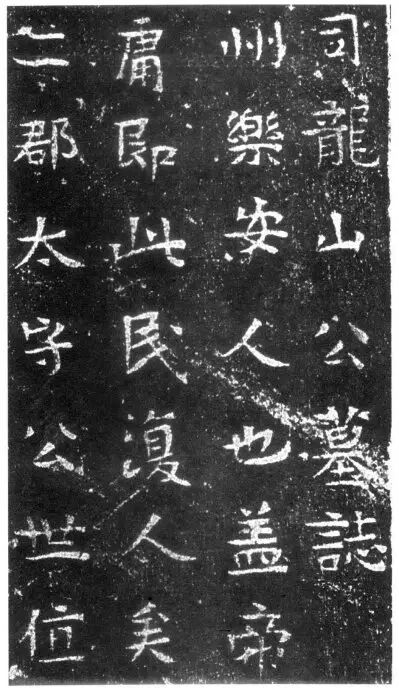 司龍山公墓誌
州樂安人也盖帝
庸即此民復人矣
二郡太守公世位